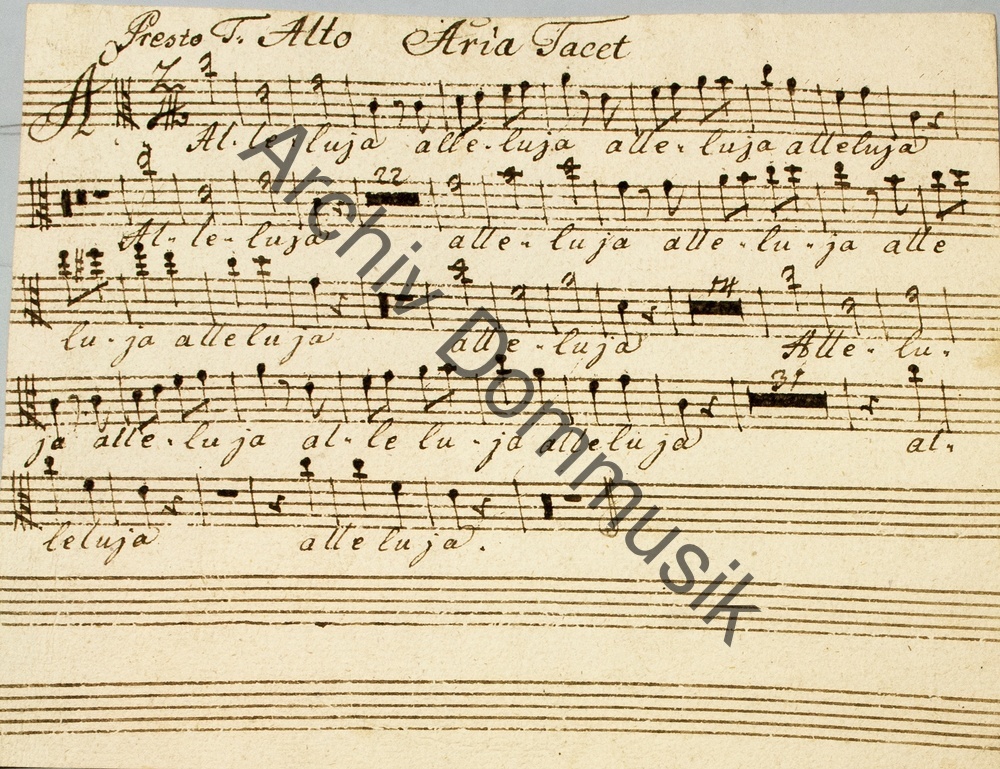 Presto T. Alto Aria Tacet
Al-le-luja alle-luja alle-luja alleluja
22
Al-le-luja alle-luja alle-lu-ja alle
lu-ja alleluja alle-luja Alle-lu-
14
31
ja alle-luja al-le lu-ja alleluja al-
leluja alleluja.
Archiv Dommusik